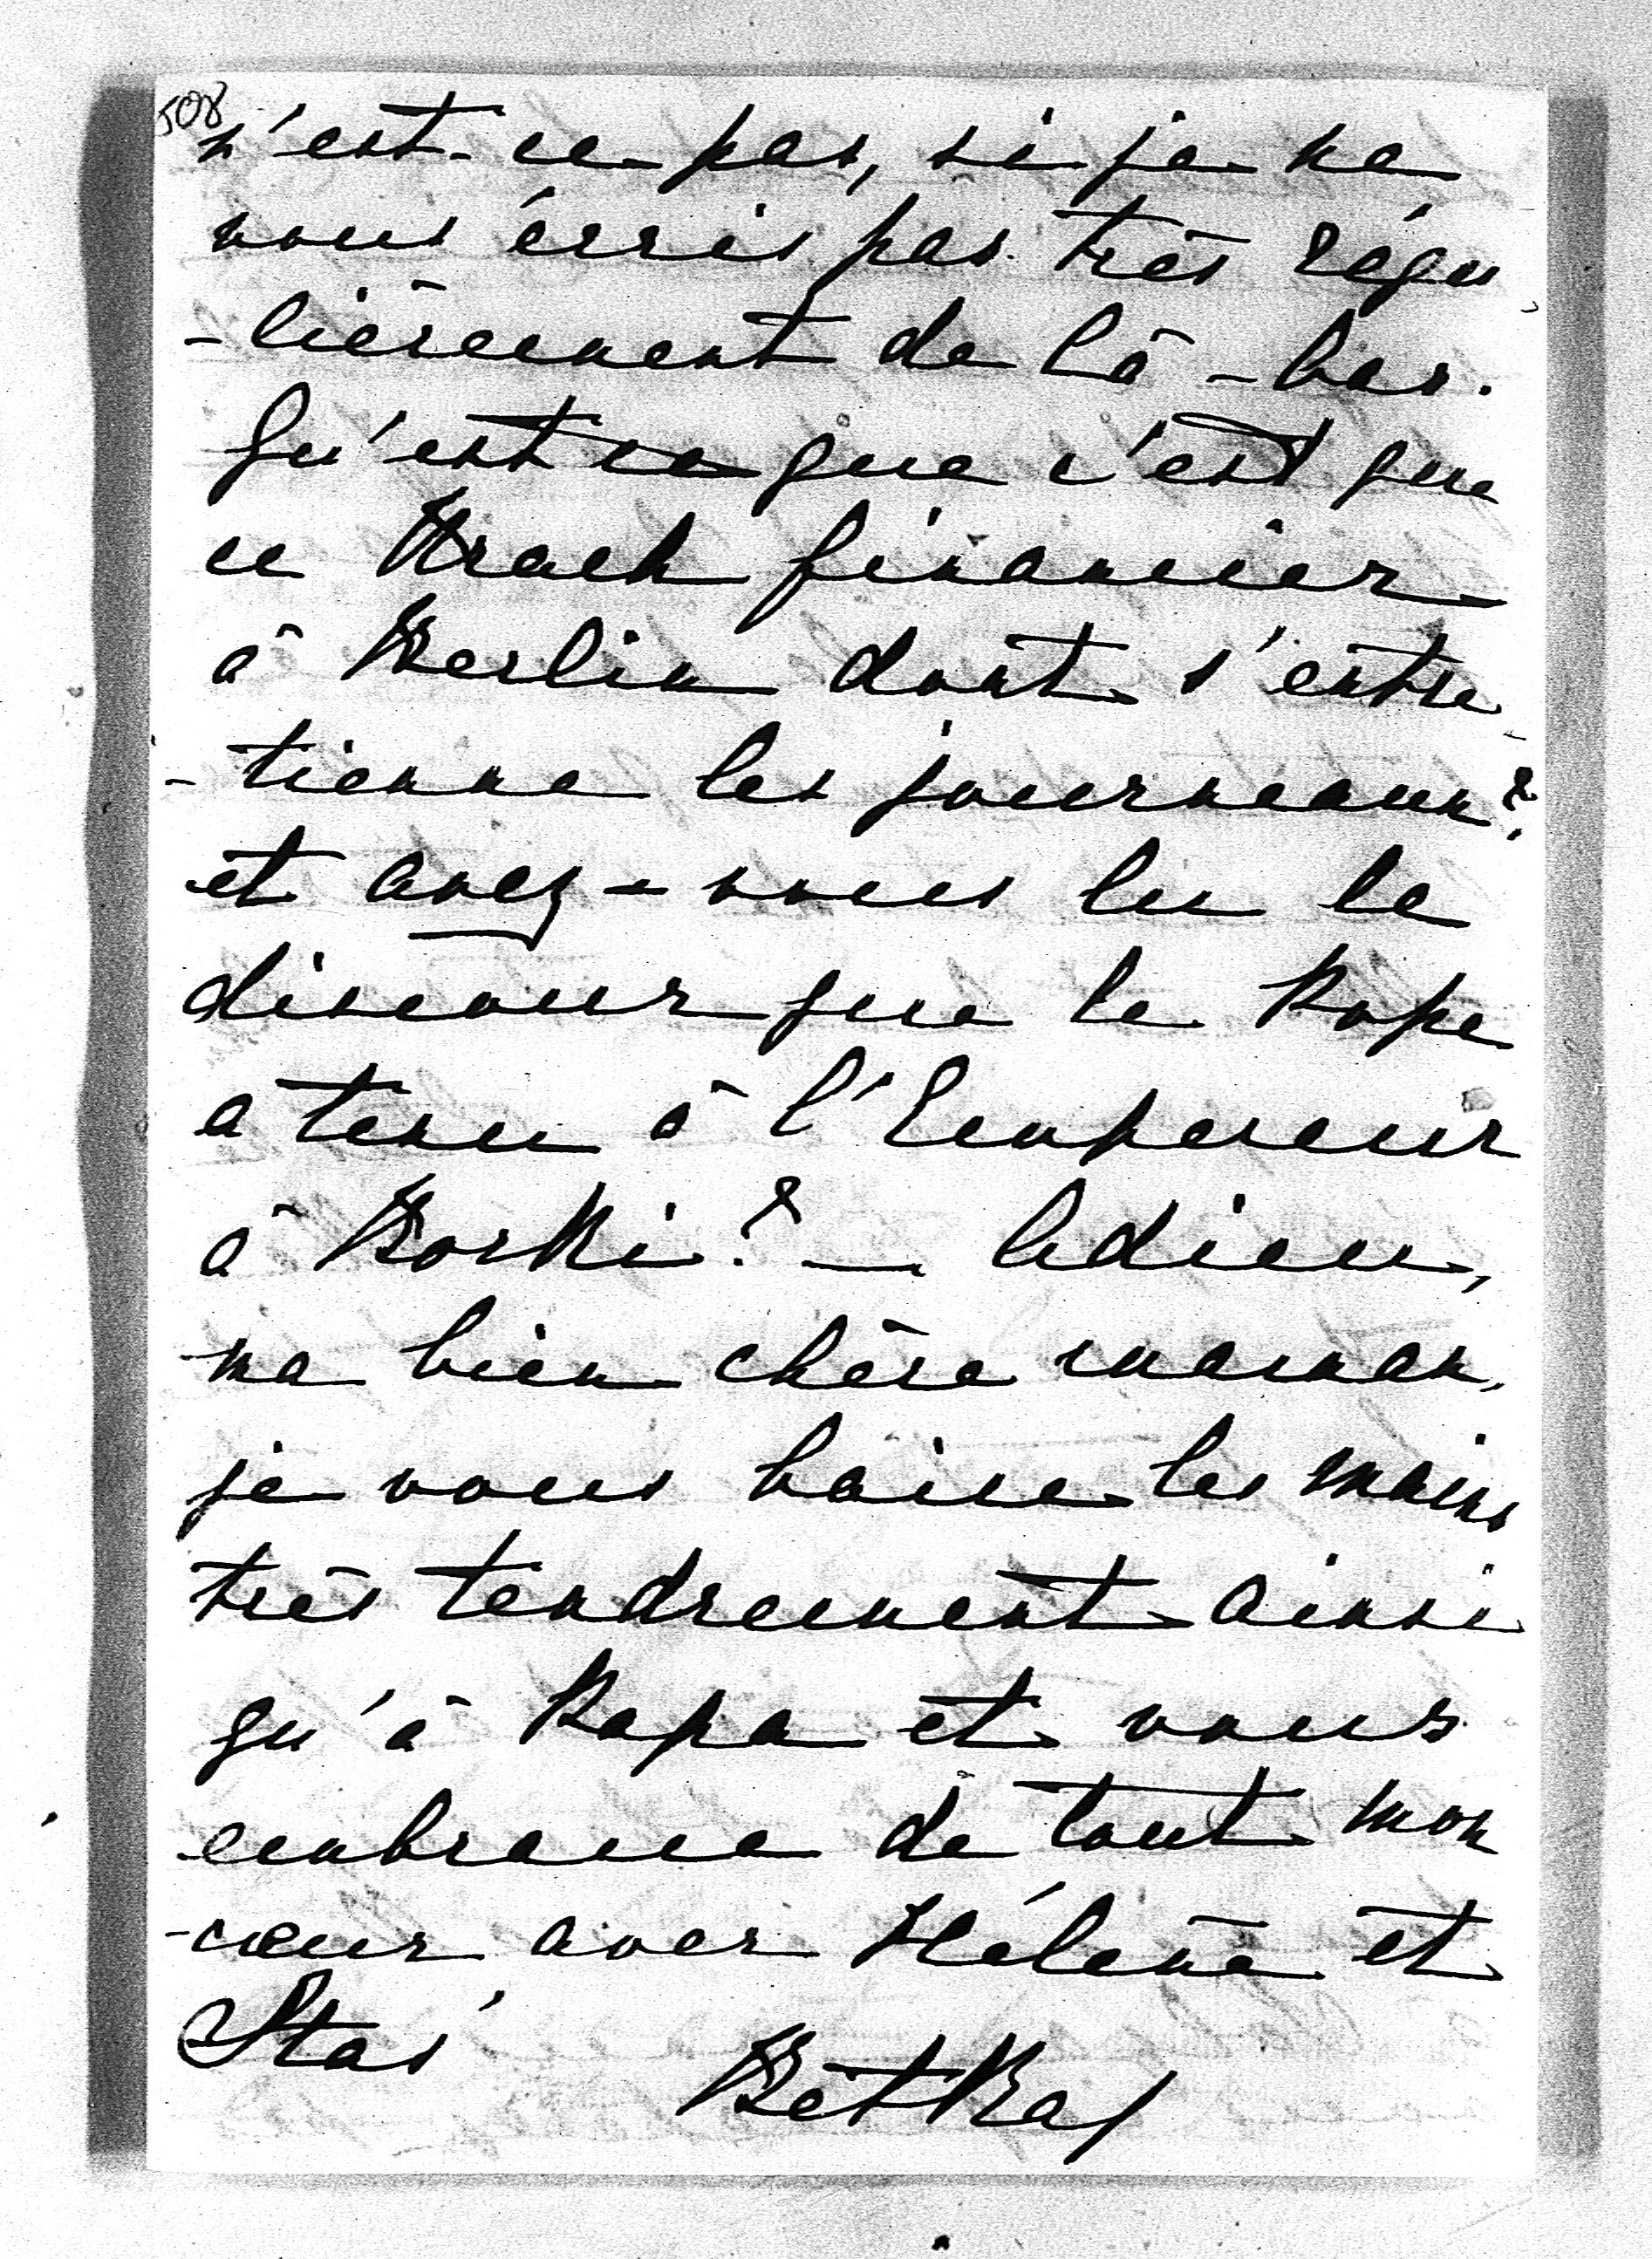 508
n'est-ce pas, si je ne
vous écris pas très régu-
-lièrement de là-bas.
Qu'est ce que c'est que
ce Krach financier
à Berlin dont s'entre-
-tienne les journeaux?
et avez-vous lu le
discour que le Pope
a tenu à l'Empereur
à Borki? — Adieu,
ma bien chère maman,
je vous baise les mains
très tendrement ainsi
qu'à Papa et vous
embrasse de tout mon
coeur avec Hélène et
Stas'